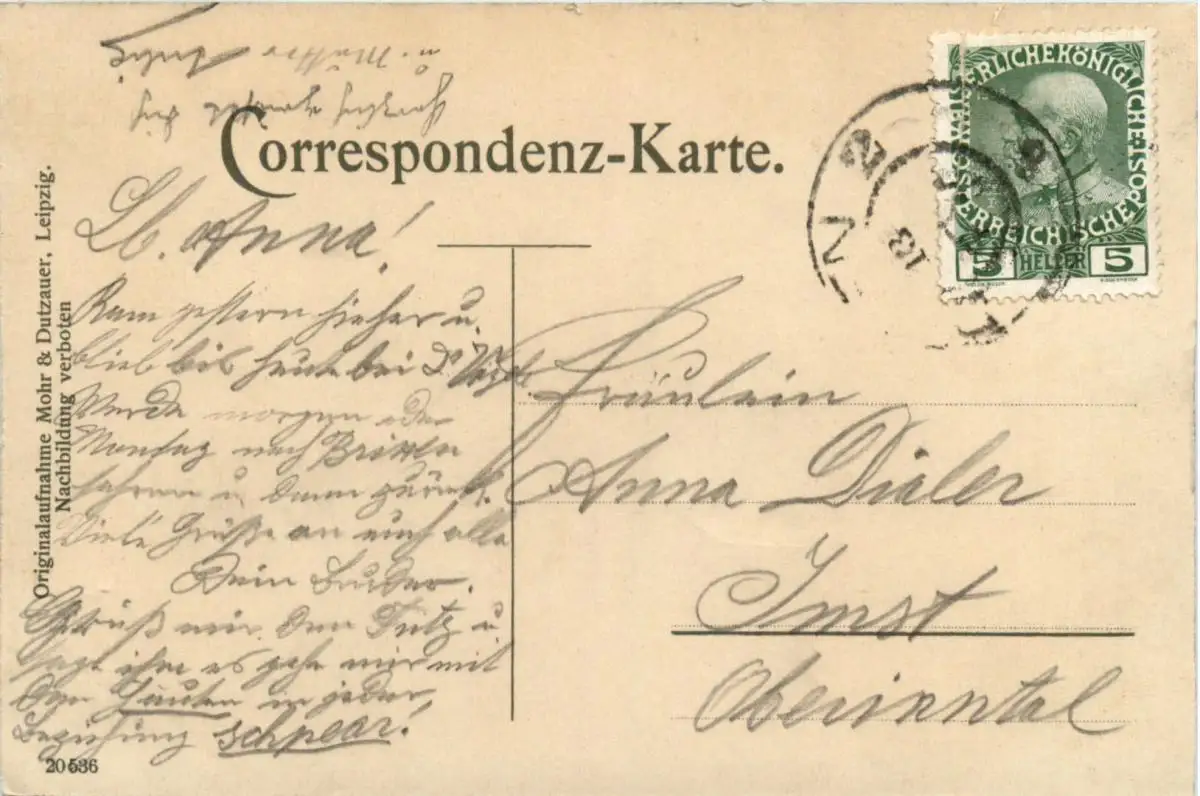 Correspondenz-Karte.
Originalaufnahme Mohr & Dutzauer, Leipzig.
Nachbildung verboten
KAISERLICHE KÖNIGLICHE ÖSTERREICHISCHE POST
5 HELLER 5
Lb. Anna!
Kam gestern hieher u.
blieb bis heute bei Dr
Werde morgen oder
Montag nach Brixlen
fahren u. dann zurück.
Viele Grüße an euch alle
Dein Bruder.
Grüß mir den Futz u
sage ihm es gehe mir mit
den in jeder
Beziehung schpear!
Herzlich grüßt dich
u. Mutter
Fräulein
Anna Dialer
Imst
Oberinntal
20536